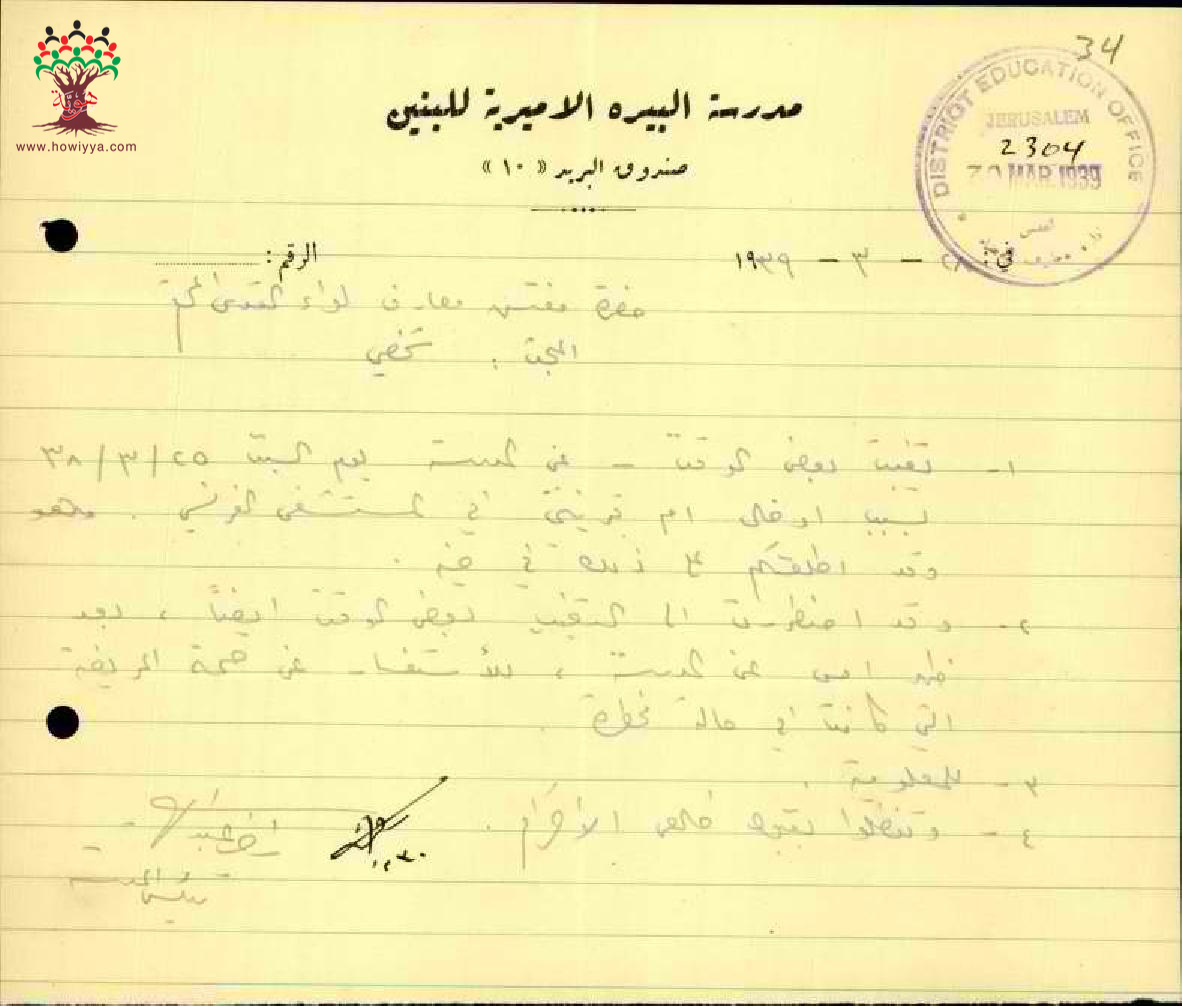 34
هوية
www.howiyya.com
مدرسة البيره الاميرية للبنين
صندوق البريد «١٠»
DISTRICT EDUCATION OFFICE
JERUSALEM
2304
30 MAR 1939
الرقم :
في: ٢٨ - ٣ - ١٩٣٩
حضرة مفتش معارف لواء القدس المحترم
المبحث : شخصي
١- تغيبت بعض الوقت - عن المدرسة يوم السبت ٢٥/٣/٣٨
بسبب ادخال ام قرينتي في المستشفى الفرنسي .
وقد اطلعتكم على ذلك في حينه .
٢- وقد اضطررت الى التغيب بعض الوقت ايضاً ، بعد
ظهر امس عن المدرسة ، للأستفسار عن صحة المريضة
التي كانت في حالة خطرة .
٣- للمعلومية .
٤- وتفضلوا بقبول خالص الاحترام .